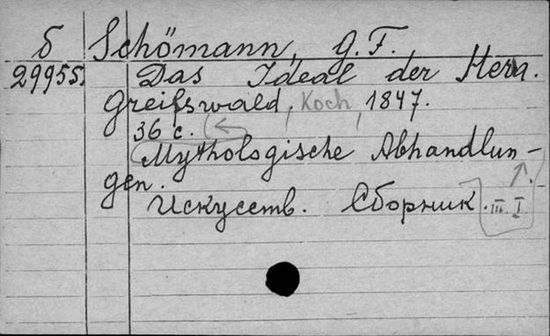 б Schömann, G.F.
29955. Das Ideal der Hera.
Greifswald, Koch, 1847.
36 с.
Mythologische Abhandlun-
gen.
Искусств. Сборник. III. I